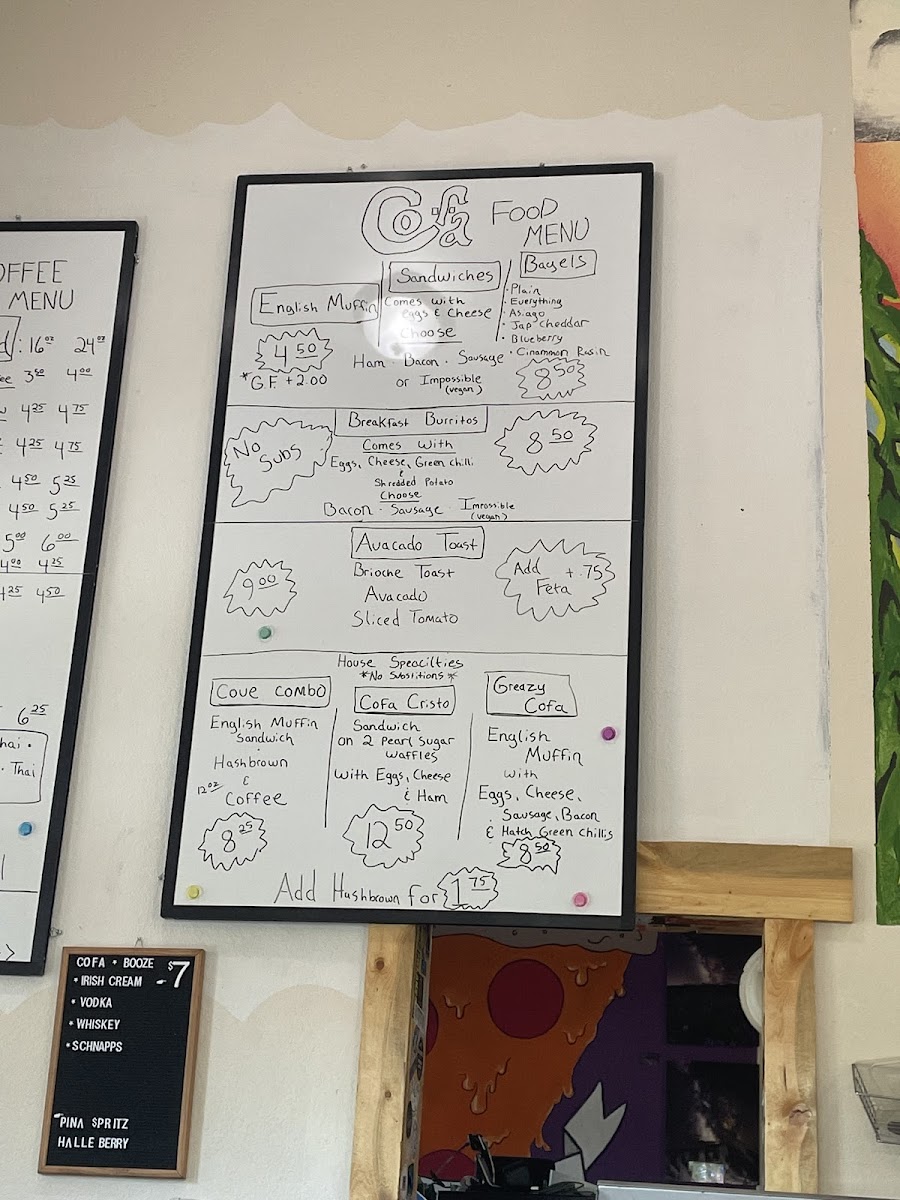 OFFEE
MENU
16oz 24oz
3 50 4 00
4 25 4 75
4 25 4 75
4 50 5 25
4 50 5 25
5 00 6 00
4 00 4 25
4 25 4 50
6 25
hai •
• Thai
Cofa FOOD MENU
English Muffin
4 50
*GF +2.00
Sandwiches
Comes with
eggs & Cheese
Choose
Ham • Bacon • Sausage
or Impossible
(vegan)
Bagels
• Plain
• Everything
• Asiago
• Jap cheddar
• Blueberry
• Cinammon Rasin
8 50
No Subs
Breakfast Burritos
Comes With
Eggs, Cheese, Green chilli
&
Shredded Potato
Choose
Bacon • Sausage • Impossible
(vegan)
8 50
Avacado Toast
9 00
Brioche Toast
Avacado
Sliced Tomato
Add + .75
Feta
House Speacilties
*No Subsitions*
Cove Combo
English Muffin
Sandwich
•
Hashbrown
&
12oz
Coffee
8 25
Cofa Cristo
Sandwich
on 2 Pearl Sugar
waffles
with Eggs, Cheese
& Ham
12 50
Greazy
Cofa
English
Muffin
with
Eggs, Cheese,
Sausage, Bacon
& Hatch Green Chillis
8 50
Add Hashbrown for 1 75
COFA • BOOZE $7
• IRISH CREAM
• VODKA
• WHISKEY
• SCHNAPPS
PINA SPRITZ
HALLE BERRY